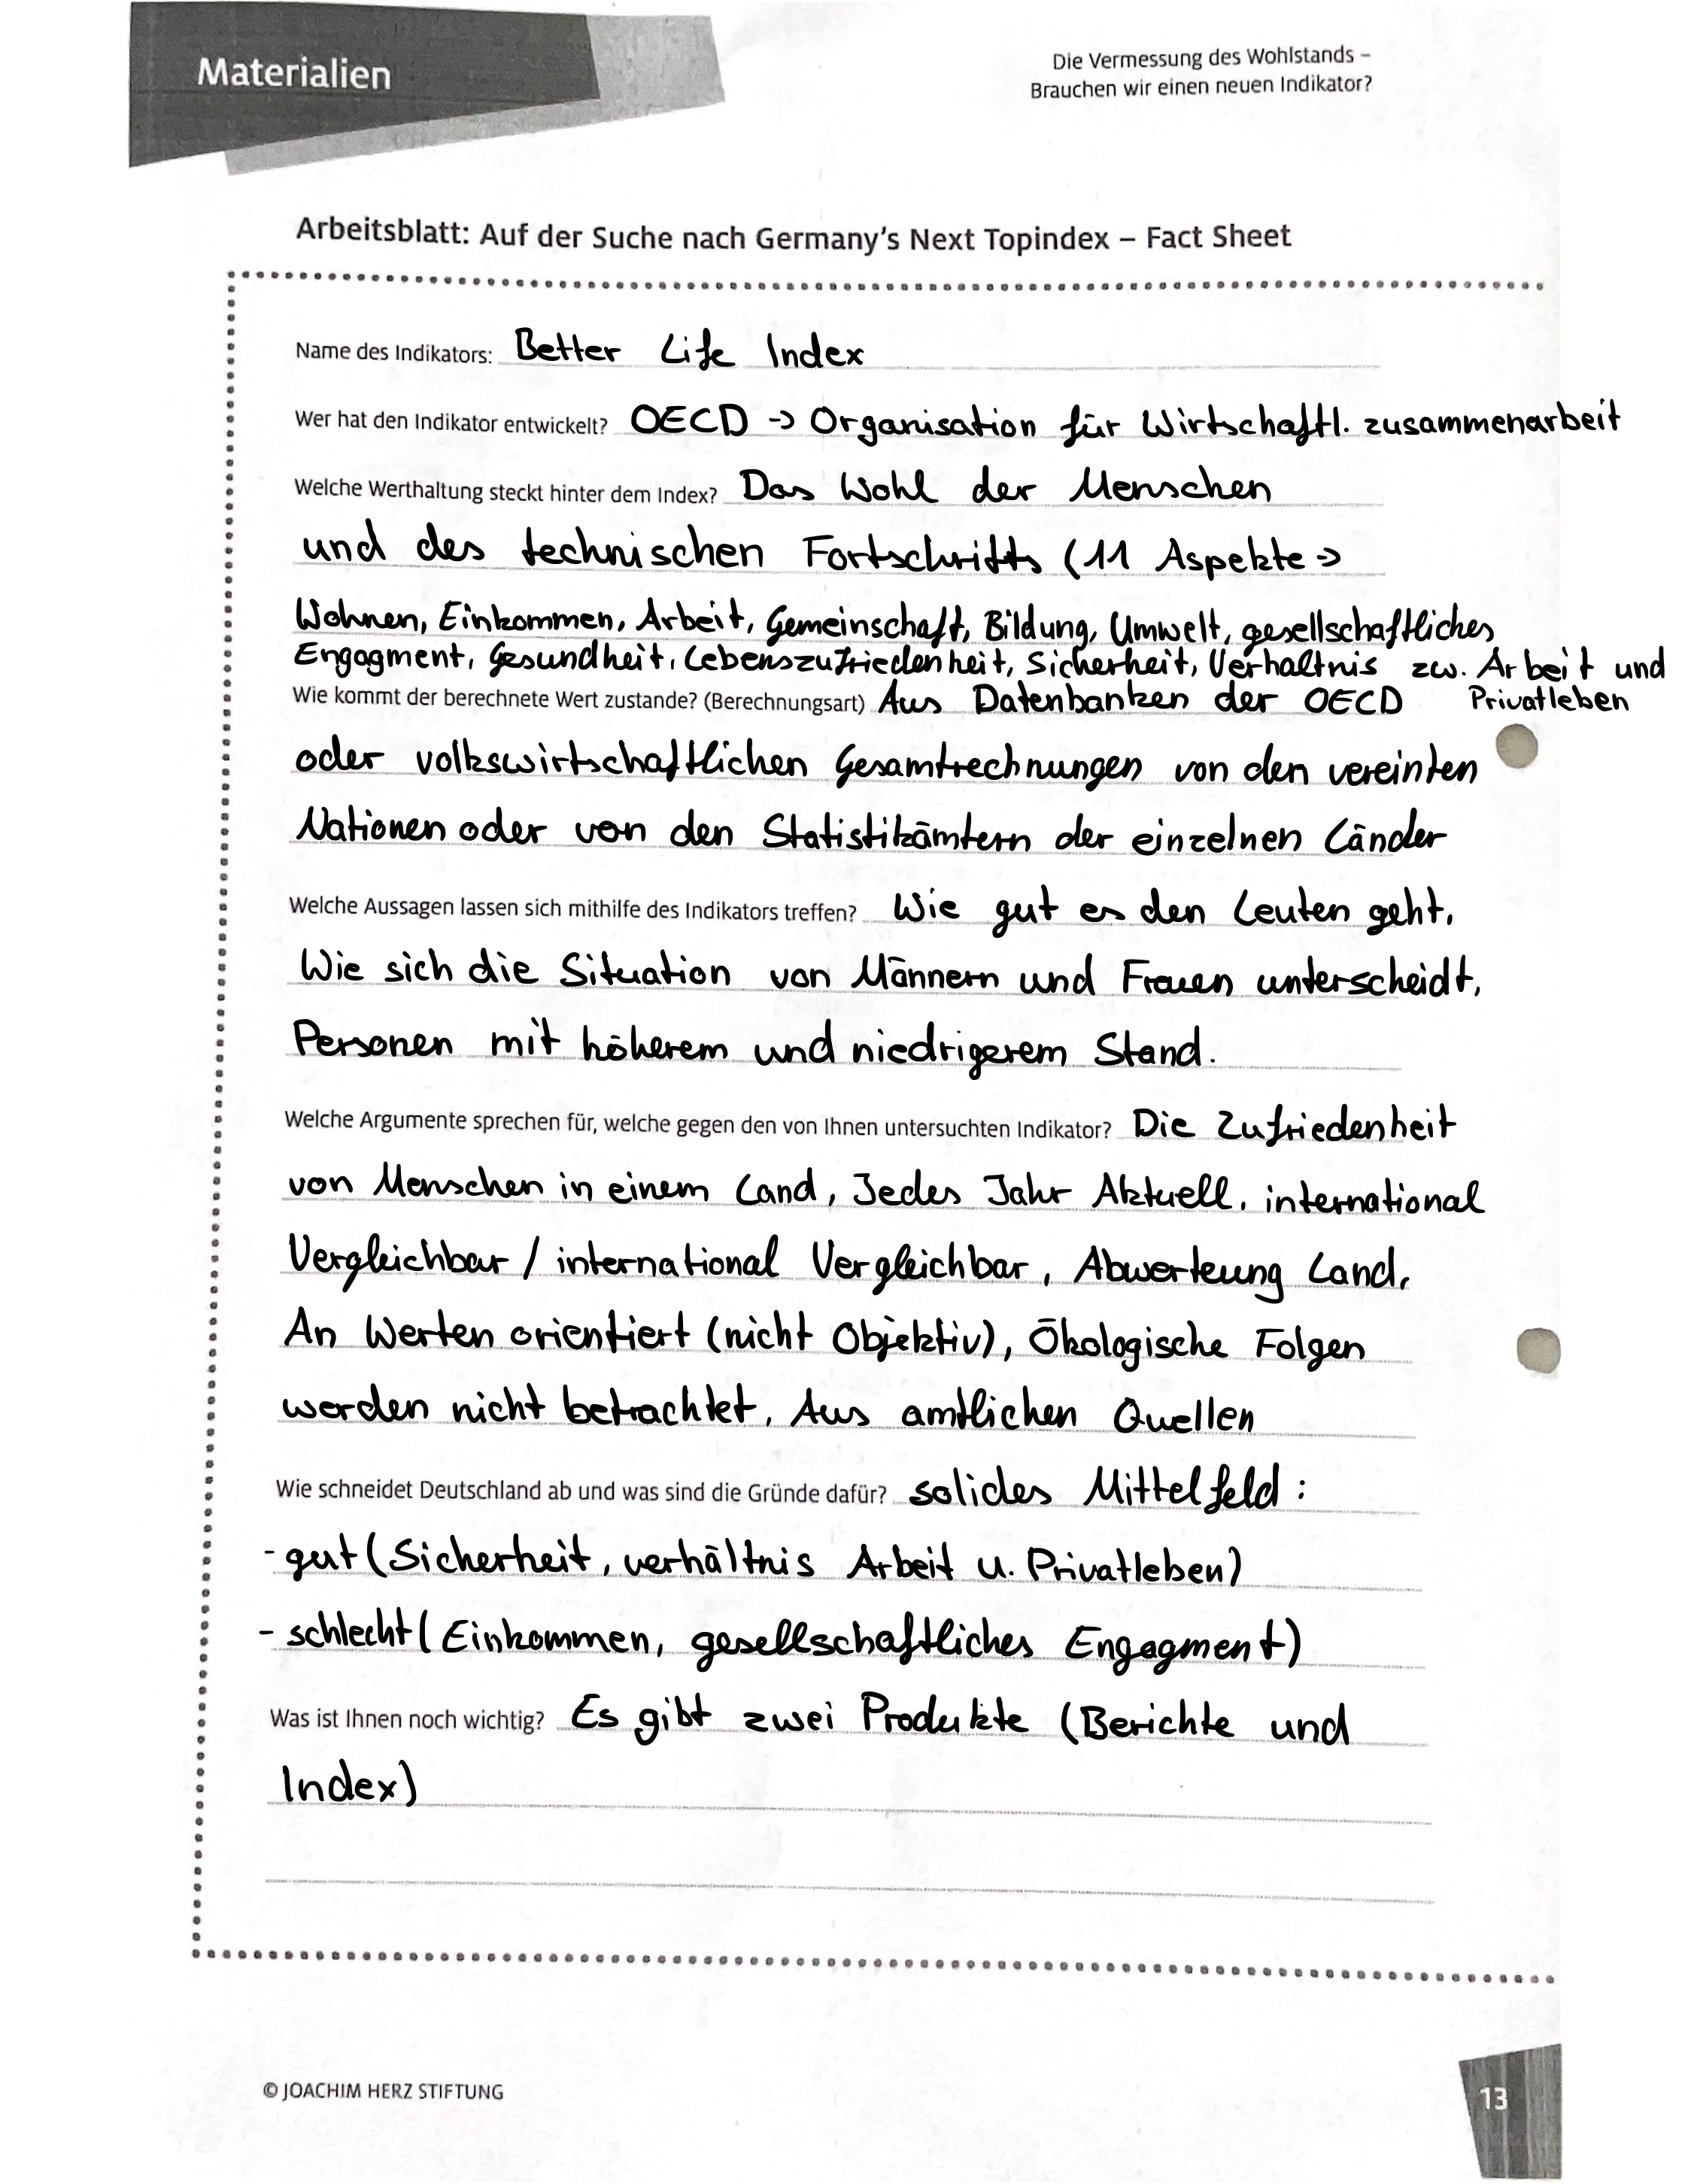 Materialien
Die Vermessung des Wohlstands –
Brauchen wir einen neuen Indikator?
Arbeitsblatt: Auf der Suche nach Germany's Next Topindex – Fact Sheet
Name des Indikators: Better Life Index
Wer hat den Indikator entwickelt? OECD -> Organisation für Wirtschaftl. zusammenarbeit
Welche Werthaltung steckt hinter dem Index? Das Wohl der Menschen
und des technischen Fortschritts (11 Aspekte =>
Wohnen, Einkommen, Arbeit, Gemeinschaft, Bildung, Umwelt, gesellschaftliches
Engagment, Gesundheit, Lebenszufriedenheit, Sicherheit, Verhältnis zw. Arbeit und
Privatleben
Wie kommt der berechnete Wert zustande? (Berechnungsart) Aus Datenbanken der OECD
oder volkswirtschaftlichen Gesamtrechnungen von den vereinten
Nationen oder von den Statistikämtern der einzelnen Länder
Welche Aussagen lassen sich mithilfe des Indikators treffen? Wie gut es den Leuten geht,
Wie sich die Situation von Männern und Frauen unterscheidt,
Personen mit höherem und niedrigerem Stand.
Welche Argumente sprechen für, welche gegen den von Ihnen untersuchten Indikator? Die Zufriedenheit
von Menschen in einem Land, Jedes Jahr Aktuell, international
Vergleichbar / international Vergleichbar, Abwerteung Land,
An Werten orientiert (nicht Objektiv), Ökologische Folgen
werden nicht betrachtet, Aus amtlichen Quellen
Wie schneidet Deutschland ab und was sind die Gründe dafür? solides Mittelfeld:
- gut (Sicherheit, verhältnis Arbeit u. Privatleben)
- schlecht (Einkommen, gesellschaftliches Engagment)
Was ist Ihnen noch wichtig? Es gibt zwei Produkte (Berichte und
Index)
© JOACHIM HERZ STIFTUNG
13